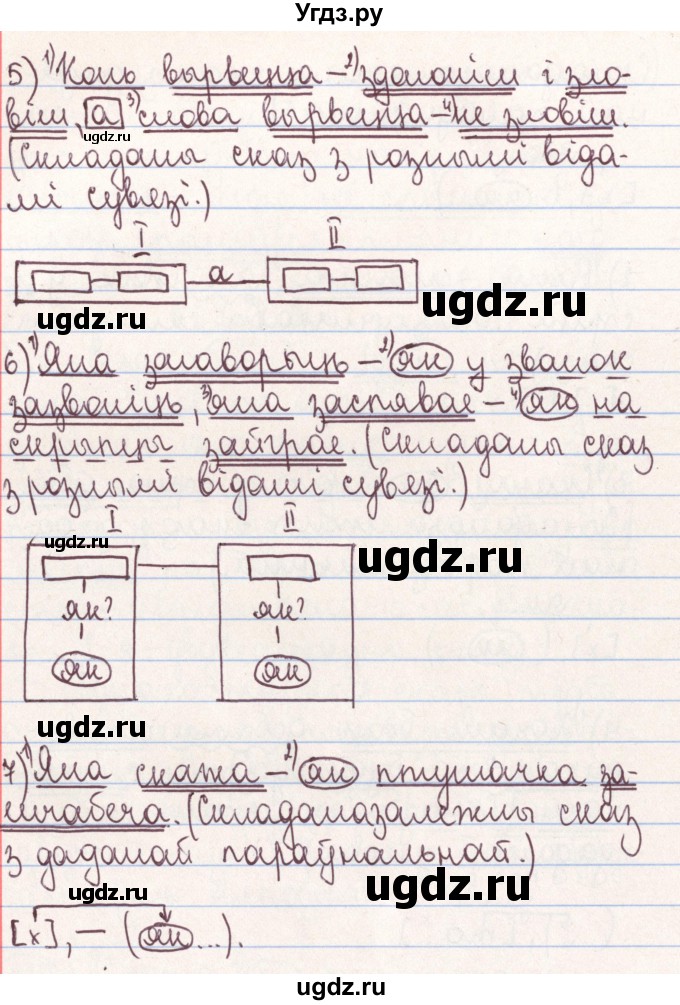 Угдз.ру
5) 1) Конь вырвецца – 2) здагонім і зло-
вім, а 3) слова вырвецца – 4) не зловіш.
ugdz.ru
(Складаны сказ з рознымі віда-
мі сувязі.)
I II
а
ugdz.ru ugdz.ru
6) 1) Яна загаворыць – 2) як у званок
зазвоніць, 3) яна заспявае – 4) як на
скрыпцы зайграе. (Складаны сказ
з рознымі відамі сувязі.)
I II
ugdz.ru
ugdz.ru
як? як?
як як
ugdz.ru
7) 1) Яна скажа – 2) як птушачка за-
шчабеча. (Складаназалежны сказ
з даданай параўнальнай.)
ugdz.ru ugdz.ru
[x], – (як ...).
ugdz.ru